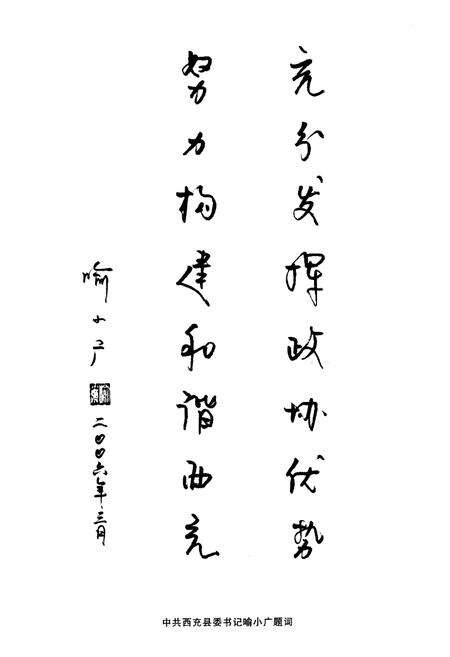 充分发挥政协优势
努力构建和谐西充
喻小广
二〇〇六年三月
中共西充县委书记喻小广题词